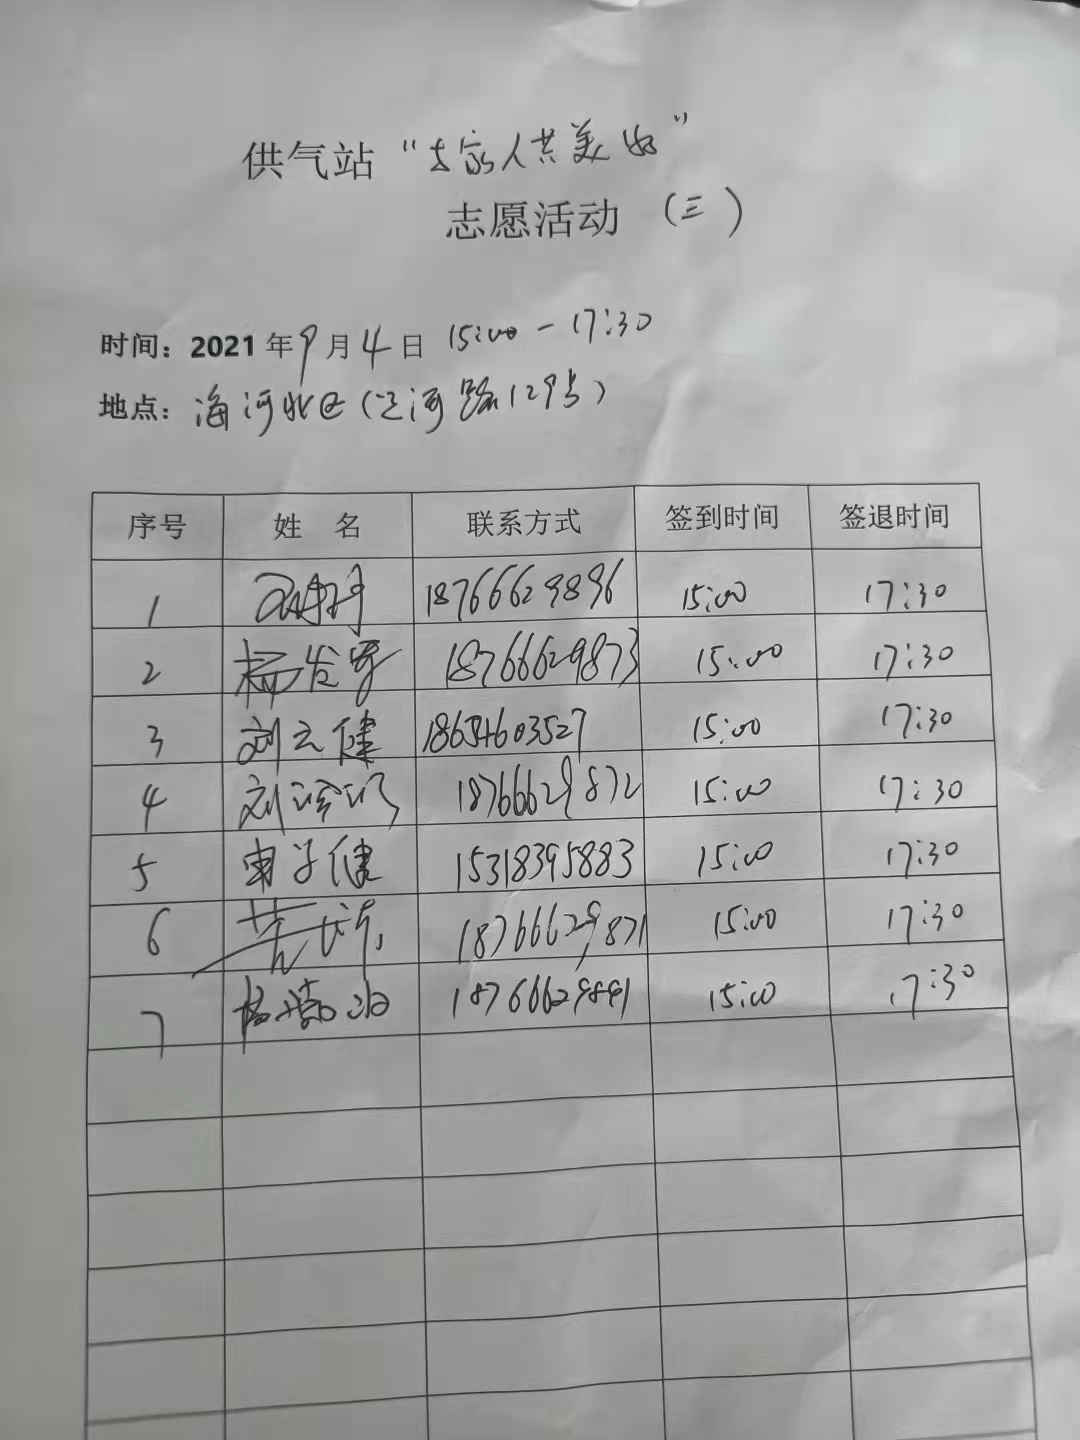 供气站“大家人共美好”
志愿活动（三）
时间：2021年9月4日 15:00-17:30
地点：海河北区（辽河路129号）
序号 姓名 联系方式 签到时间 签退时间
1 18766629896 15:00 17:30
2 杨发家 18766629873 15:00 17:30
3 刘云健 18654603527 15:00 17:30
4 刘 18766629872 15:00 17:30
5 子健 15318395883 15:00 17:30
6 18766629871 15:00 17:30
7 18766629891 15:00 17:30